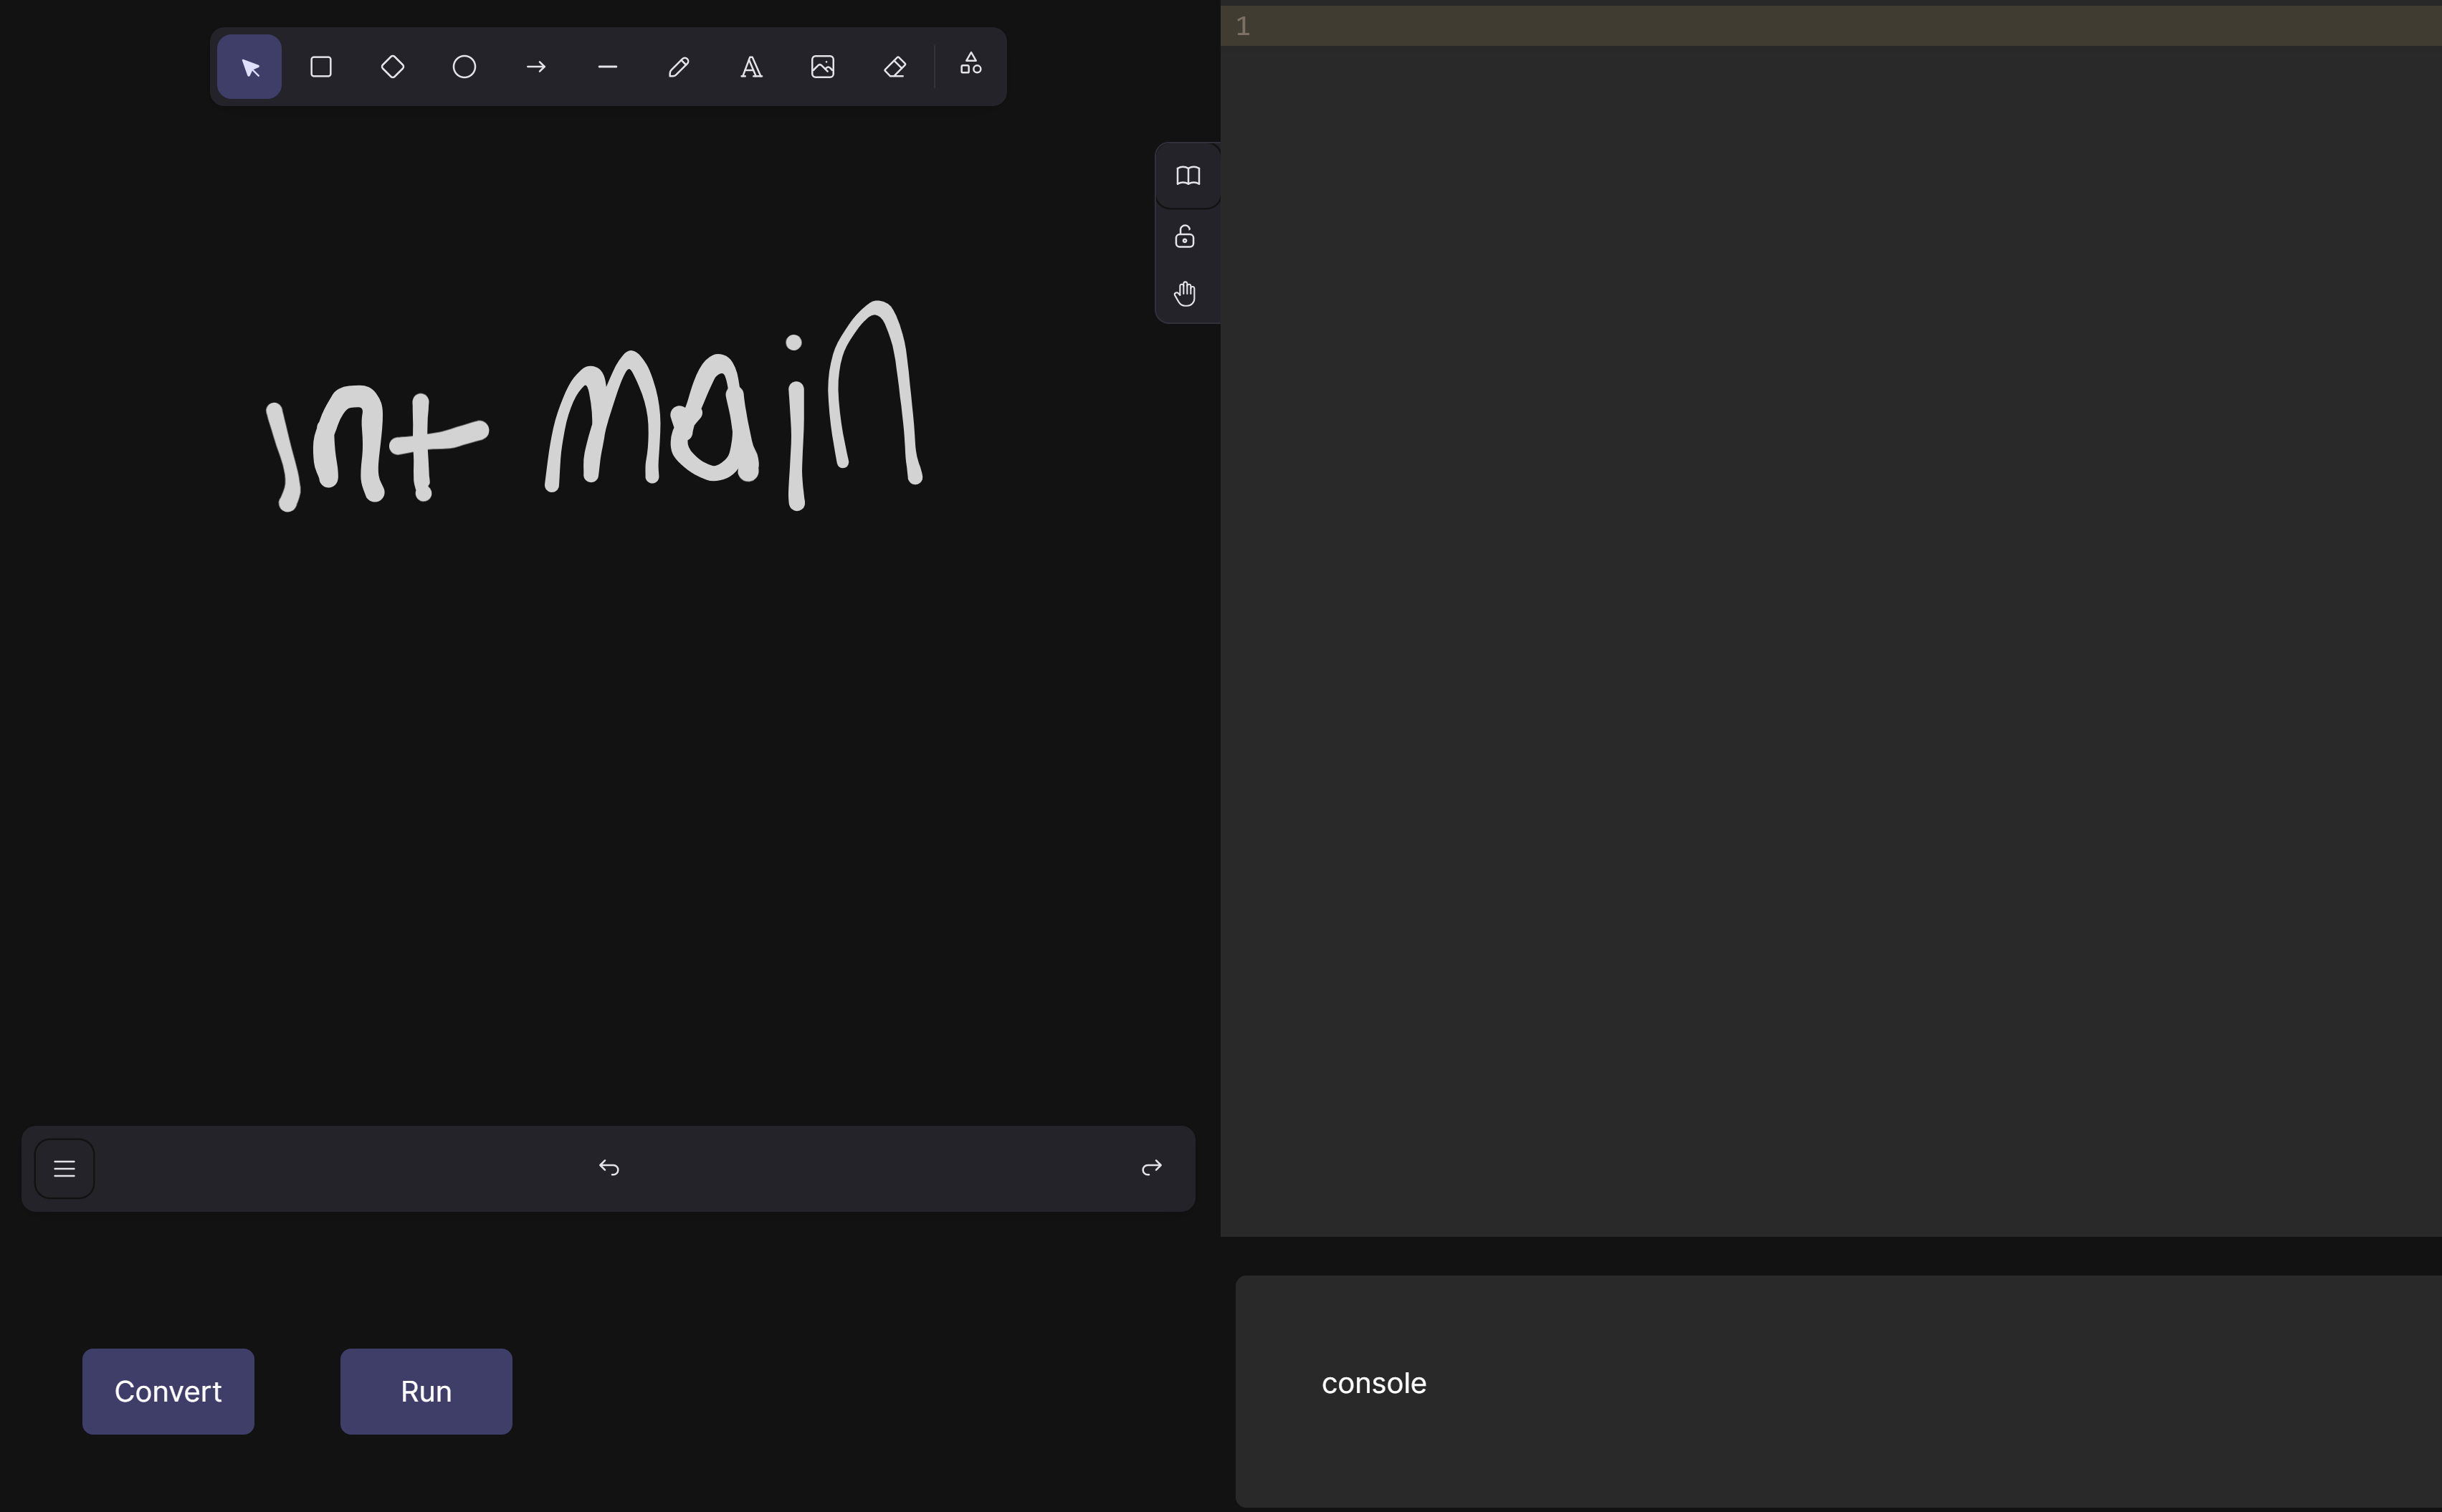 1
int main
Convert
Run
console